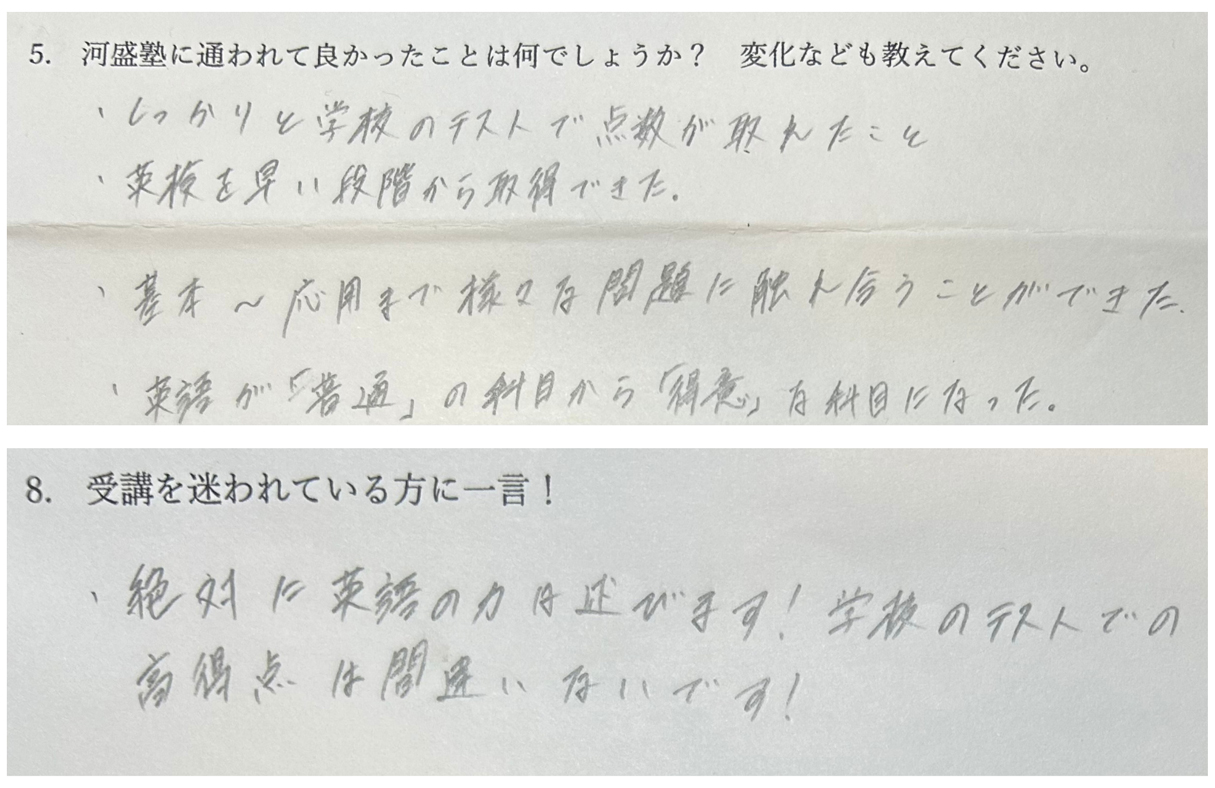 5. 河盛塾に通われて良かったことは何でしょうか？ 変化なども教えてください。
、しっかりと学校のテストで点数が取れたこと
、英検を早い段階から取得できた。
、基本～応用まで様々な問題に触れ合うことができた.
、英語が「普通」の科目から「得意」な科目になった。
8. 受講を迷われている方に一言！
、絶対に英語の力は延びます！学校のテストでの
高得点は間違いないです！